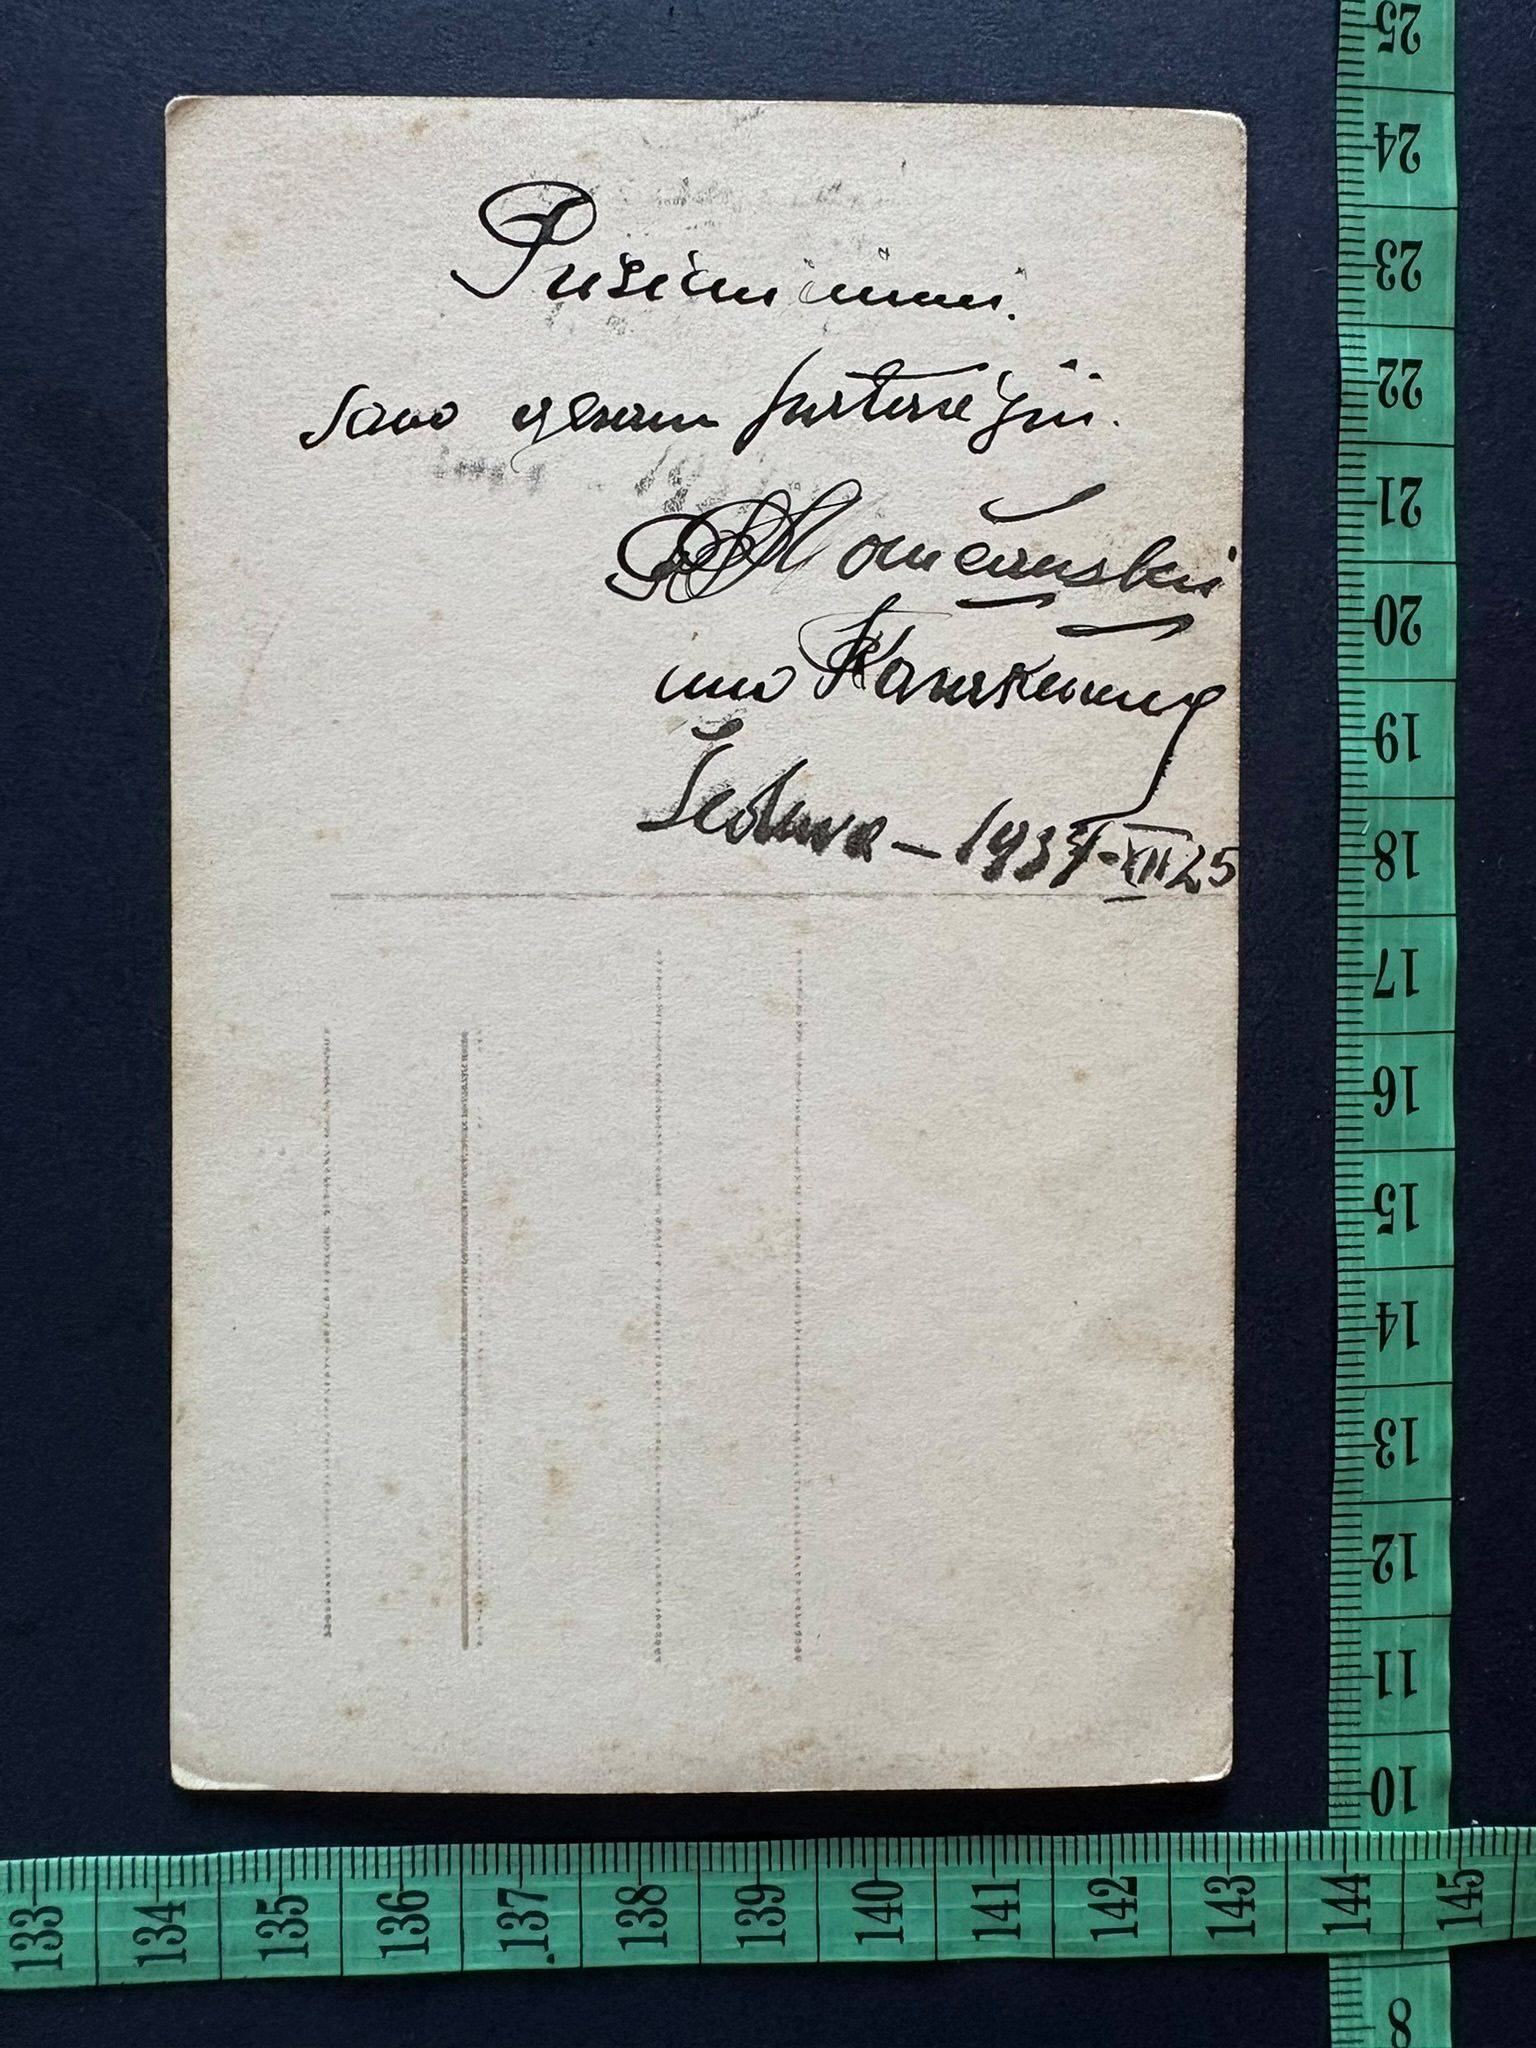 Prisiminimui.
savo geram
nuo
Šeduva – 1937-XII 25
25
24
23
22
21
20
19
18
17
16
15
14
13
12
11
10
8
133 134 135 136 137 138 139 140 141 142 143 144 145